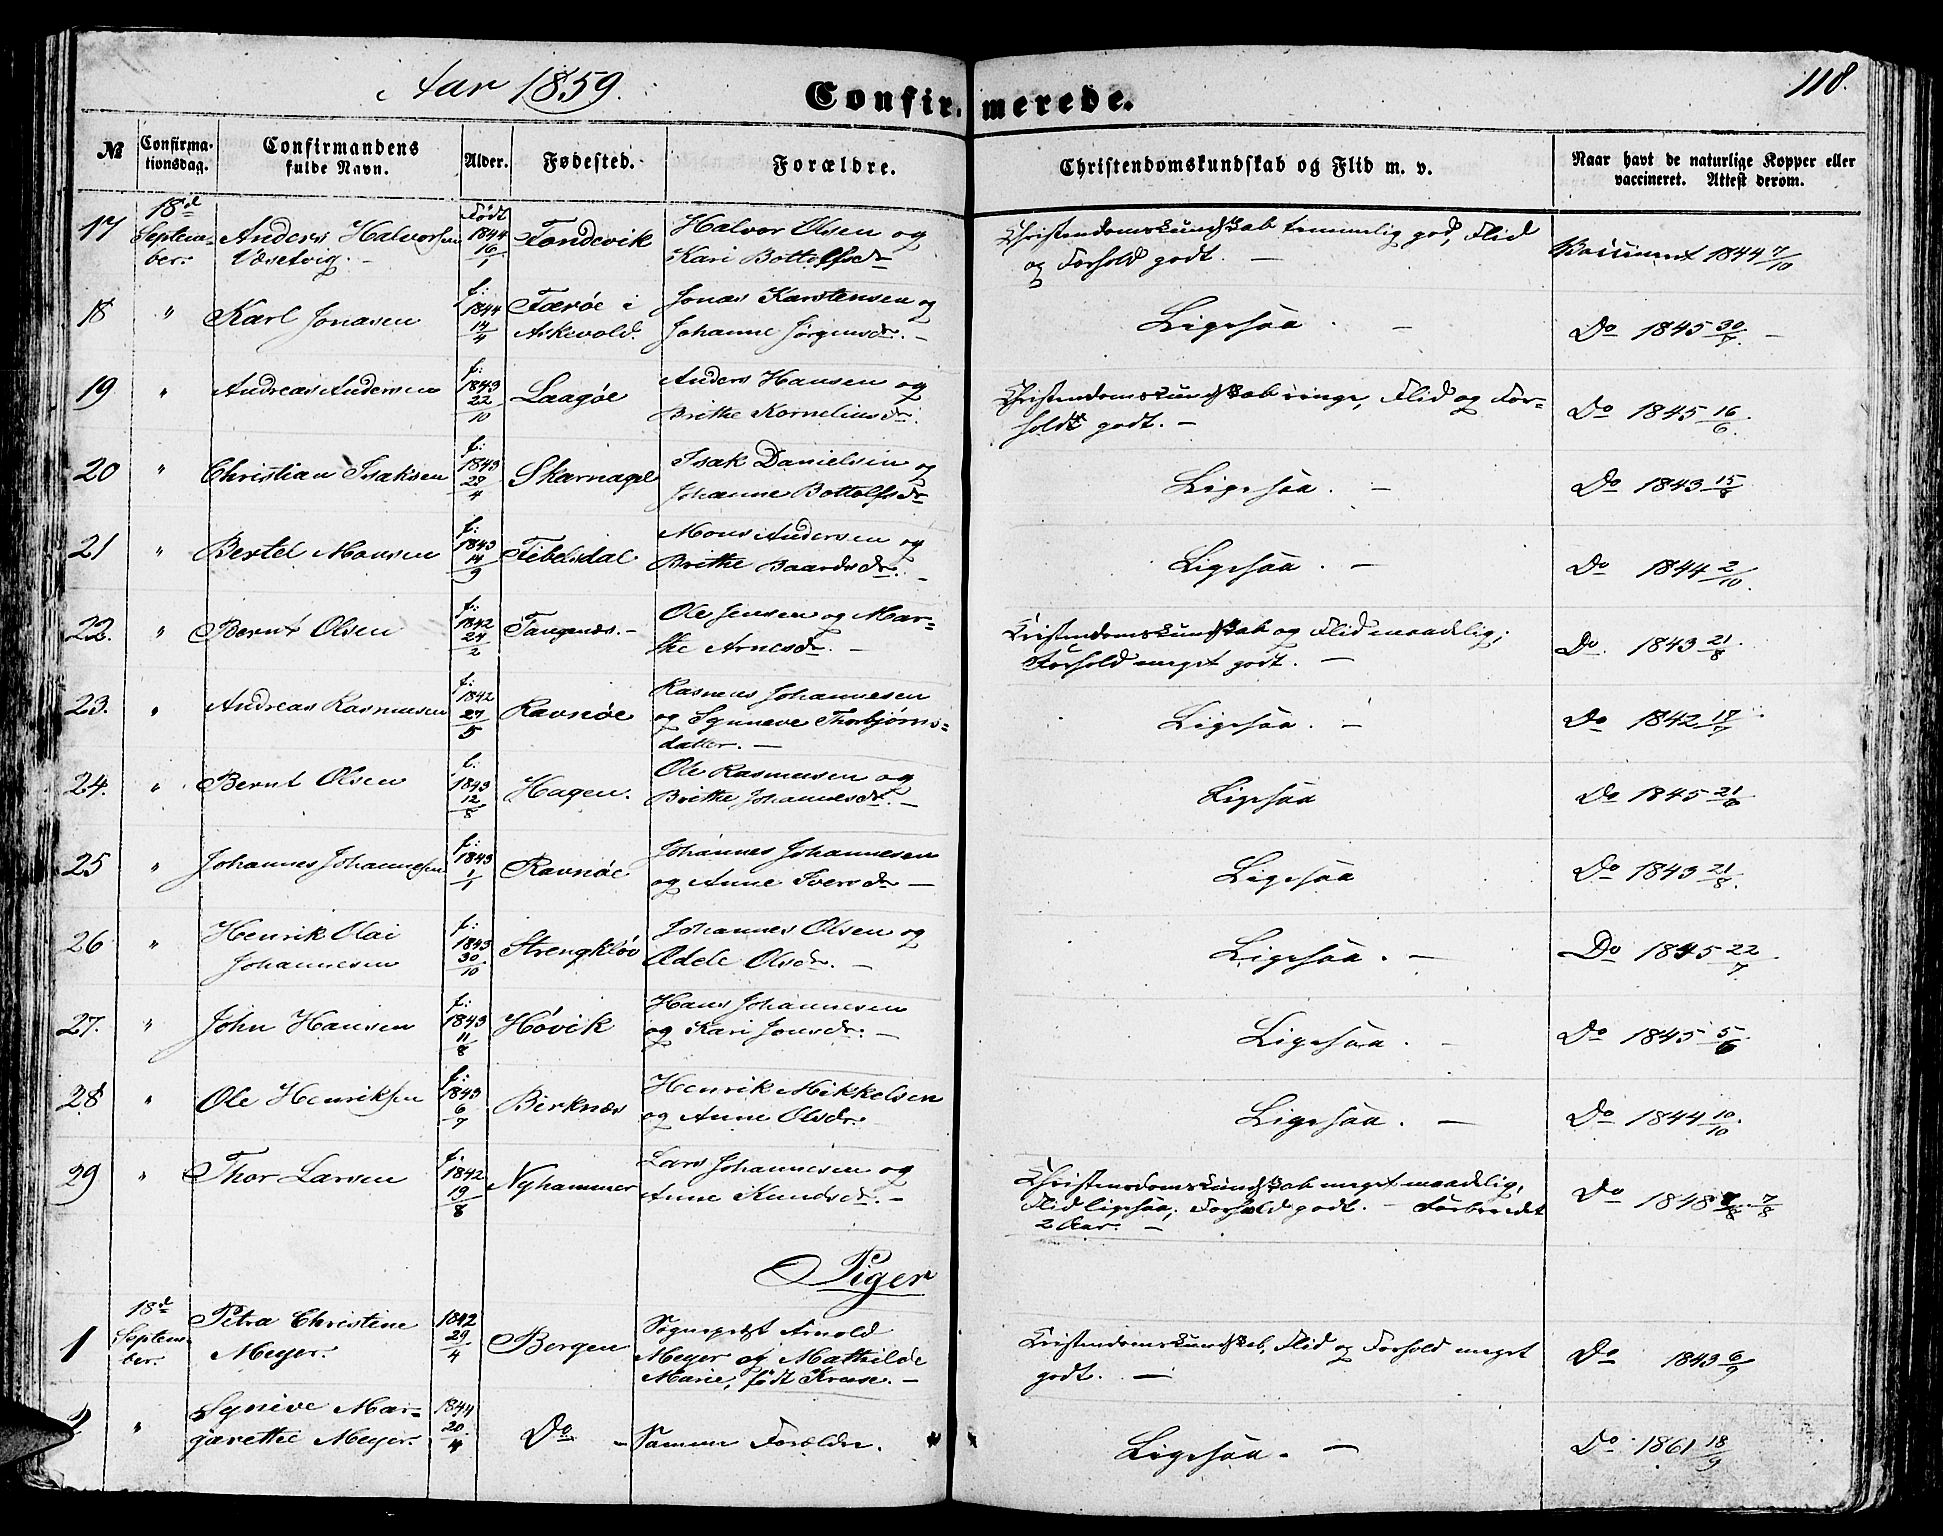 Aar 1859.
Confirmerede.
118.
№
Confirma-
tionsdag.
Confirmandens
fulde Navn.
Alder.
Fødested.
Forældre.
Christendomskundskab og Flid m. v.
Naar havt de naturlige Kopper eller
vaccineret. Attest derom.
17 18d Septem-ber. Anders Halvorsen Født 1844 16/1 Halvor Olsen og Kari Bottolfsdr Christendomskundskab temmelig god, Flid
og Forhold godt. — Vaccineret 1844 7/10
18 " Karl Jonasen f: 1844 14/4 Færøe i Askevold. Jonas Karstensen og Johanne Jørgensdr. — Ligesaa. — Do 1845 30/7. —
19 " Andreas Andersen f: 1843 22/10 Laagøe Anders Hansen og Brithe Korneliusdr. Christendomskundskab ringe, Flid og For-
hold godt. — Do 1845 16/6.
20 " Christian Isaksen f: 1843 Isak Danielsen og Johanne Bottolfsdr Ligesaa. — Do 1843 15/8
21 " Bertel Monsen f: 1843 14/9 Mons Andersen og Brithe Baardsdr. — Ligesaa. — Do 1844 2/10
22. " Bernt Olsen f: 1842 24/2 Tangenæs. — Ole Jensen og Mar-
the Arnesdr. — Kristendomskundskab og Flid maadelig;
Forhold meget godt. — Do. 1843 21/8.
23. " Andreas Rasmusen f: 1842 27/5 Ravnøe Rasmus Johannesen
og Synneve Thorbjørns-
datter. — Ligesaa. — Do 1842
24. " Bernt Olsen f. 1843 12/8 Hagen. Ole Rasmusen og
Brithe Johannesdr. — Ligesaa Do 1845
25 " Johannes Johannesen f: 1843 1/1 Ravnøe Johannes Johannesen
og Anne Iversdr — Ligesaa Do 1843 21/8.
26 " Henrik Olai
Johannesen f: 1843 30/10 Johannes Olsen og
Olsdr. — Ligesaa. — Do 1845 22/7.
27. " John Hansen f: 1843 11/8 Høvik Hans Johannesen
og Kari Jonsdr. — Ligesaa. — Do 1845 5/6
28 " Ole Henriksen f: 1843 6/7 Birknæs Henrik Mikkelsen
og Anne Olsdr. Ligesaa. — Do 1844 10/10.
29 " Thor Larsen f: 1842 19/8 Nyhammer Lars Johannesen og
Anne Knudsdr. — Christendomskundskab meget maadelig,
Flid ligesaa; Forhold godt. — Forberedt
2 Aar. — Do 1848 7/8
Piger
1 18d Septem-
ber. Petra Christine
Meyer. 1842 29/4 Bergen Sognepræst Arnold
Meyer og Mathilde
Marie, født Kruse. — Kristendomskundskab, Flid og Forhold meget
godt. — Do 1843 6/9
2 " Synive Mar-
garethe Meyer. 1844 20/4 Do — Samme Forældre. Ligesaa. — Do 1861 18/9